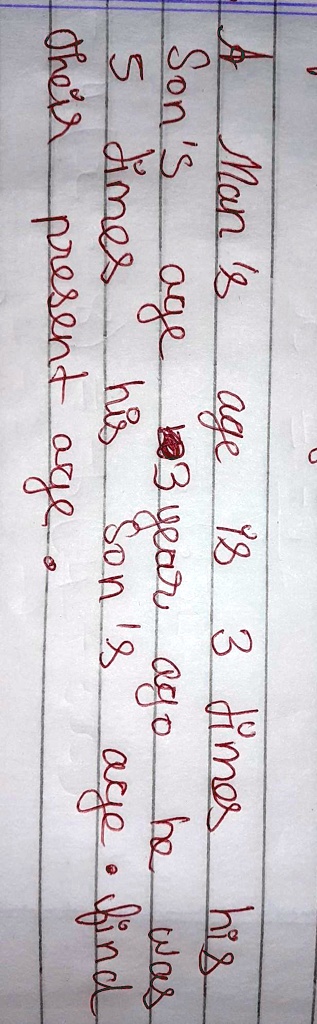 A Man's age is 3 times his
Son's age 3 year ago he was
5 times his Son's age. find
their present age.